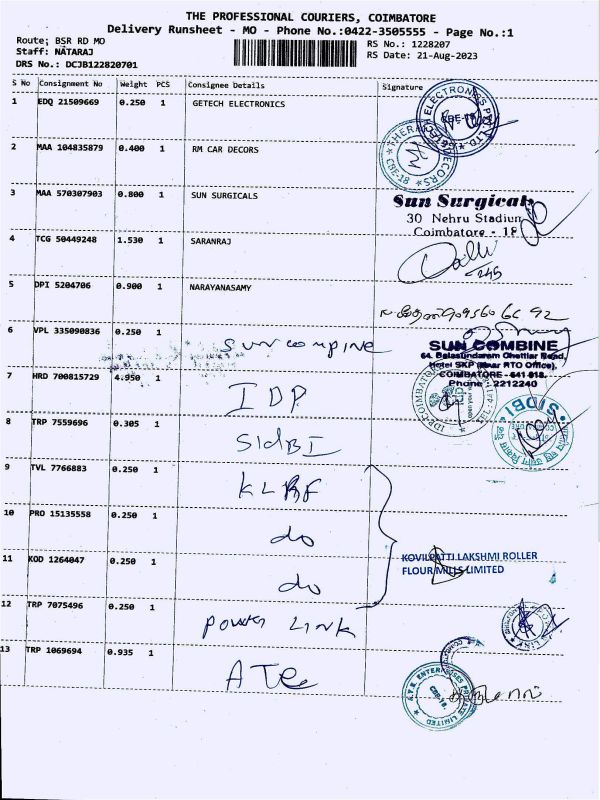 THE PROFESSIONAL COURIERS, COIMBATORE
Delivery Runsheet - MO - Phone No.:0422-3505555 - Page No.:1
Route; BSR RD MO
Staff: NATARAJ
DRS No.: DCJB122820701
RS No.: 1228207
RS Date: 21-Aug-2023
S No Consignment No Weight PCS Consignee Details Signature
1 EDQ 21509669 0.250 1 GETECH ELECTRONICS
2 MAA 104835879 0.400 1 RM CAR DECORS
CBE-18
3 MAA 570307903 0.800 1 SUN SURGICALS
Sun Surgicals
30 Nehru Stadium
Coimbatore - 18
4 TCG 50449248 1.530 1 SARANRAJ
5 DPI 5204706 0.900 1 NARAYANASAMY
6 VPL 335090836 0.250 1 sun compine
SUN COMBINE
64, Balasundaram Chettiar Road,
Hotel SKP (Near RTO Office),
COIMBATORE - 641 018.
Phone : 2212240
7 HRD 700815729 4.950 1 IDP
8 TRP 7559696 0.305 1 SIdBI
SIDBI
9 TVL 7766883 0.250 1 KLRF
10 PRO 15135558 0.250 1 do
11 KOD 1264047 0.250 1 do
KOVILPATTI LAKSHMI ROLLER
FLOUR MILLS LIMITED
12 TRP 7075496 0.250 1 power LINK
13 TRP 1069694 0.935 1 ATE